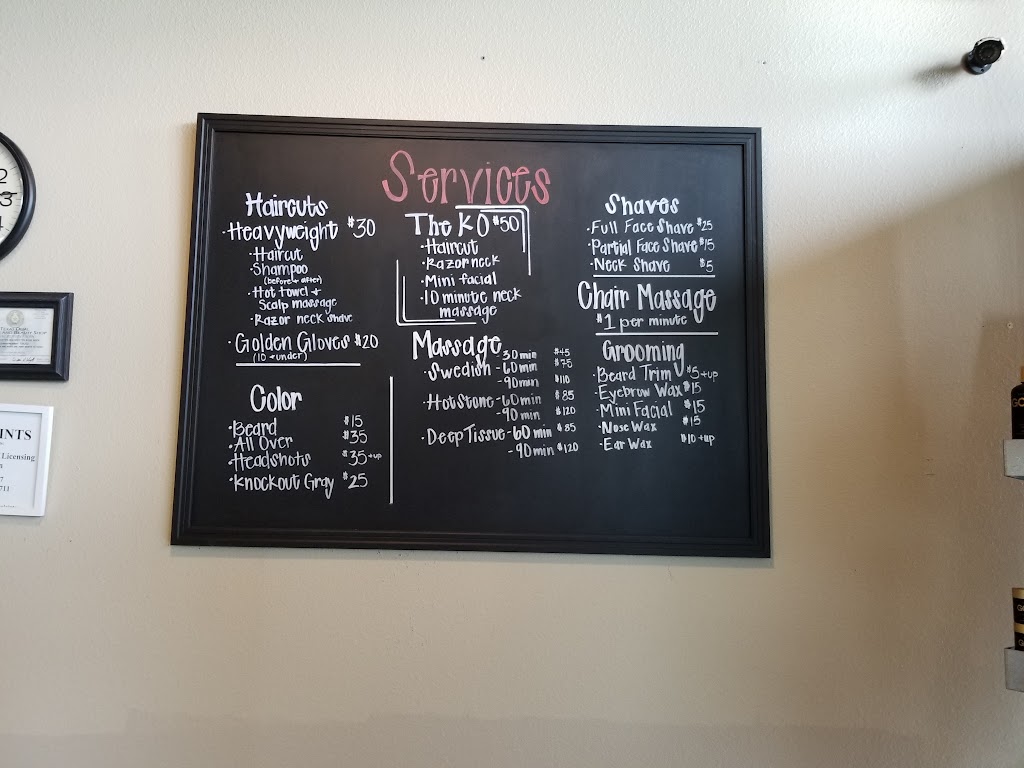 Services
Haircuts
·Heavyweight $30
·Haircut
·Shampoo
(before + after)
·Hot towel +
Scalp massage
·Razor neck shave
·Golden Gloves $20
(10 + under)
Color
·Beard $15
·All Over $35
·Headshots $35+up
·Knockout Gray $25
The KO $50
·Haircut
·Razor neck
·Mini facial
·10 minute neck
massage
Massage
·Swedish -30 min $45
-60 min $75
-90 min $110
·Hot Stone -60 min $85
-90 min $120
·Deep Tissue -60 min $85
-90 min $120
Shaves
·Full Face Shave $25
·Partial Face Shave $15
·Neck Shave $5
Chair Massage
$1 per minute
Grooming
·Beard Trim $5+up
·Eyebrow Wax $15
·Mini Facial $15
·Nose Wax $15
·Ear Wax $10+up
2
3
4
INTS
Licensing
7
711
GO